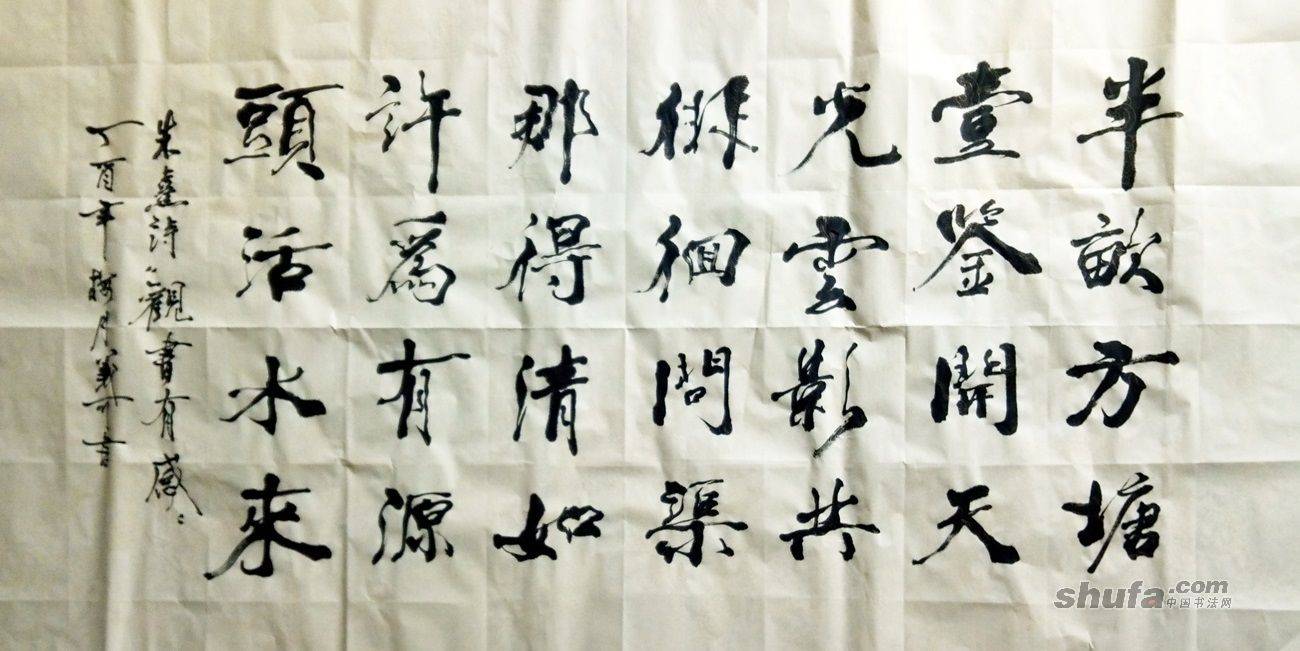 半畝方塘
壹鉴開天
光雲影共
徘徊問渠
那得清如
許爲有源
頭活水來
朱熹詩觀書有感
丁酉年梅月
shufa.com
中国书法网